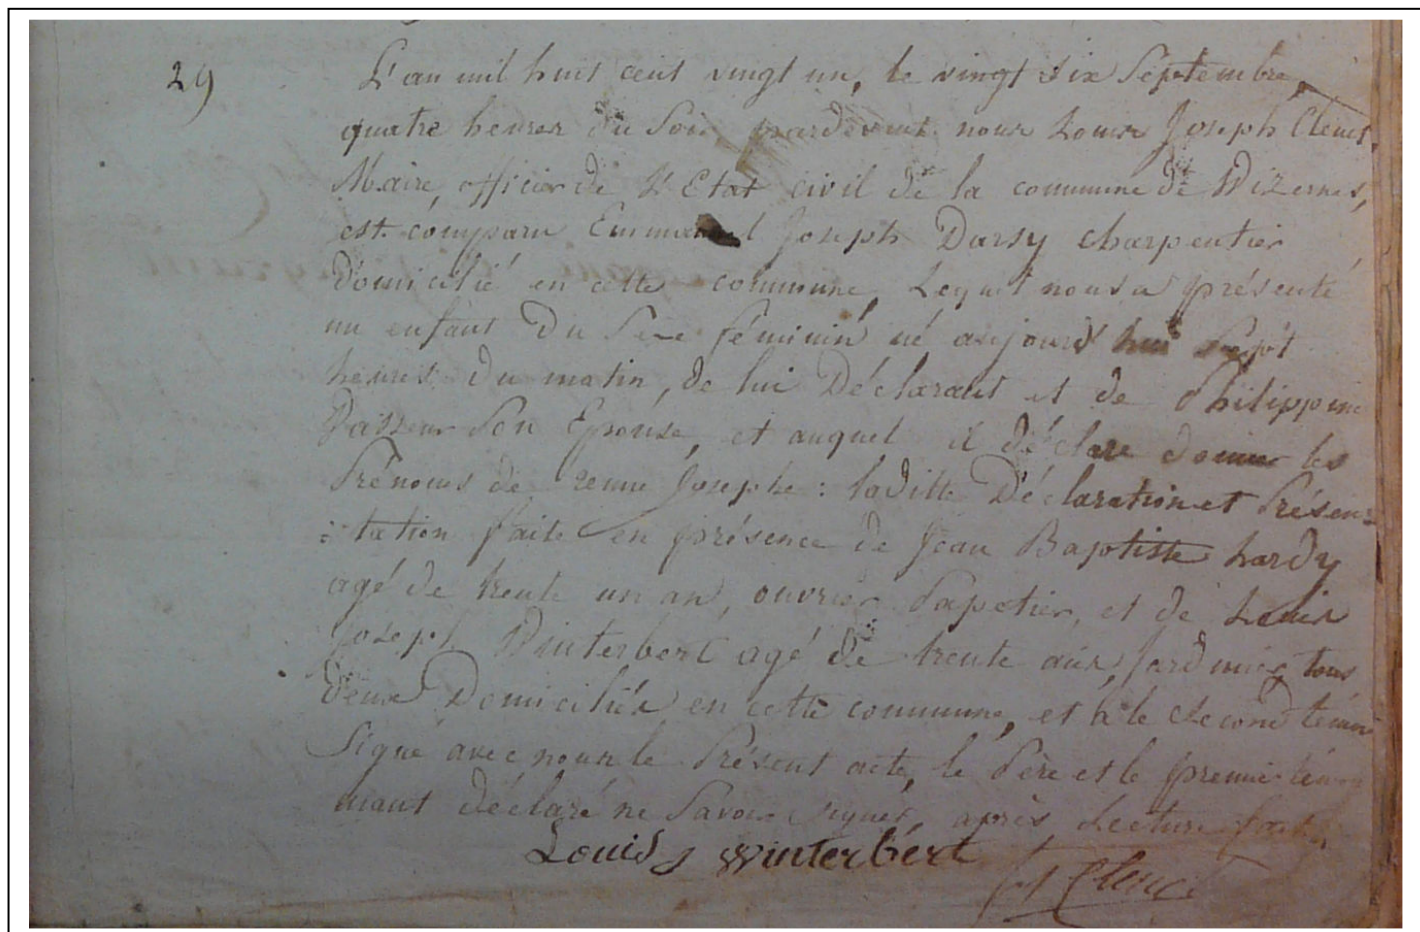 29
L'an mil huit cent vingt un, le vingt six Septembre,
quatre heures du Soir pardevant nous Louis Joseph Clenet
Maire, officier de L'Etat civil de la commune de Wizernes,
est comparu Emmanuel Joseph Darsy charpentier
Domicilié en cette commune, Lequel nous a présenté
un enfant Du Sexe féminin né aujourd'hui Sept
heures Du matin, de lui Déclarant et de Philippine
Son Epouse, et auquel il déclare donner les
Prénoms de Josephe : ladite Déclaration et Présen=
=tation faite en présence de Jean Baptiste hardy
agé de trente un ans, ouvrier Papetier, et de Louis
Joseph Winterbert agé de trente ans, Jardinier, tous
deux Domiciliés en cette commune, et à le Second témoin
Signé avec nous le Présent acte, le Père et le premier témoin
aiant déclaré ne Savoir signer, après Lecture faite,
Louis j winterbert